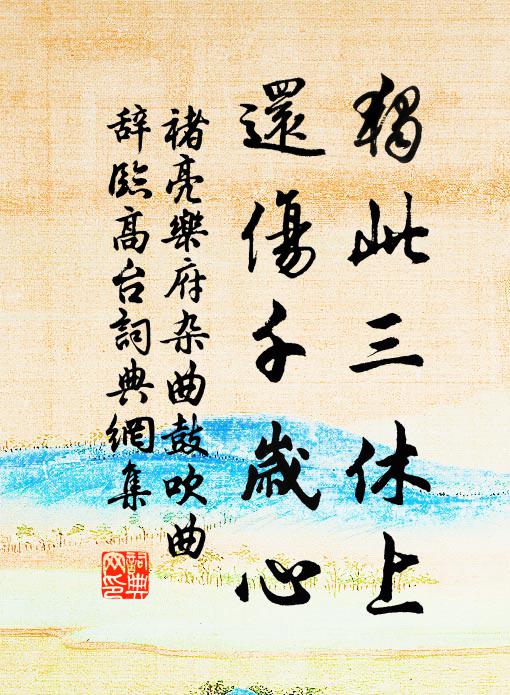 獨此三休上
還傷千歲心
褚亮樂府杂曲鼓吹曲
辞臨高台詞典網集
詞典